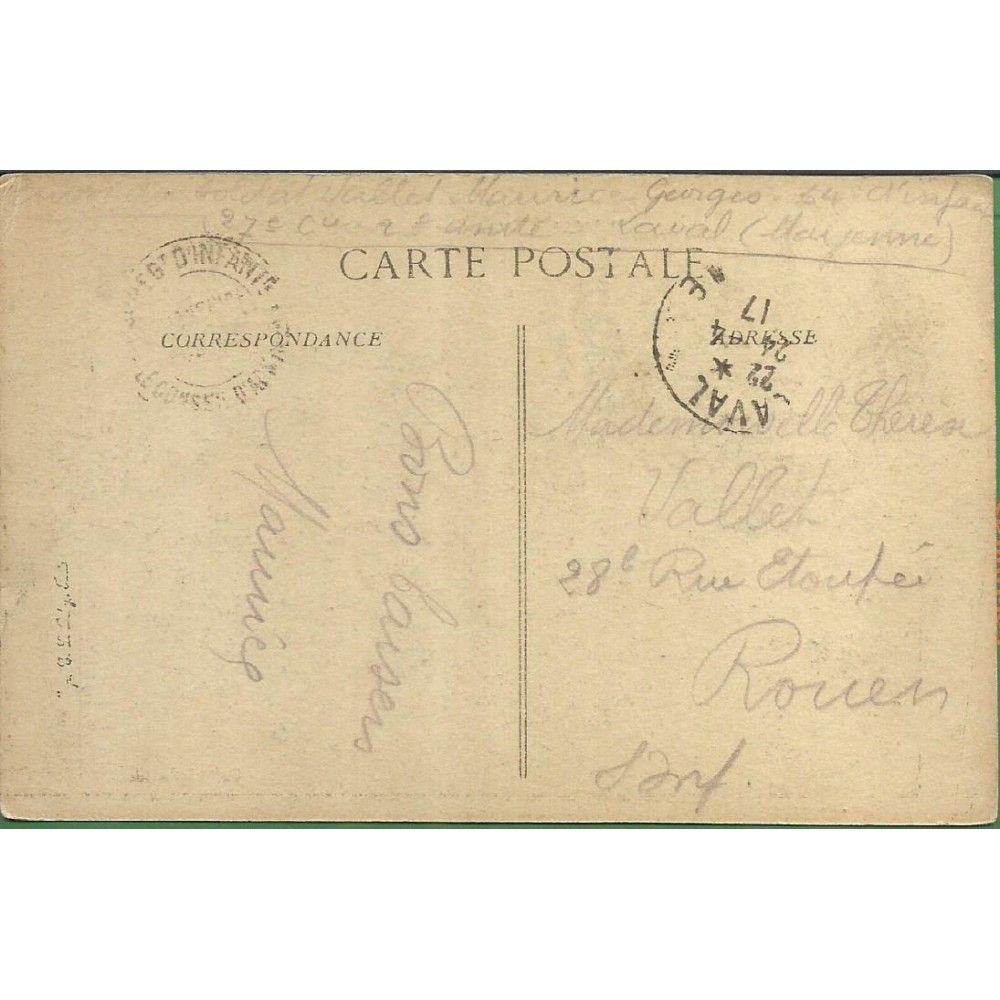 Soldat Vallet Maurice Georges 54 d'infan
(27e Cie 2e unité Laval (Mayenne)
CARTE POSTALE
REGt D'INFANTE
CORRESPONDANCE
ADRESSE
LAVAL
22 * 24 4 17
Bons baisers
Maurice
Mademoiselle Thérèse
Vallet
28e Rue Etoupée
Rouen
S inf